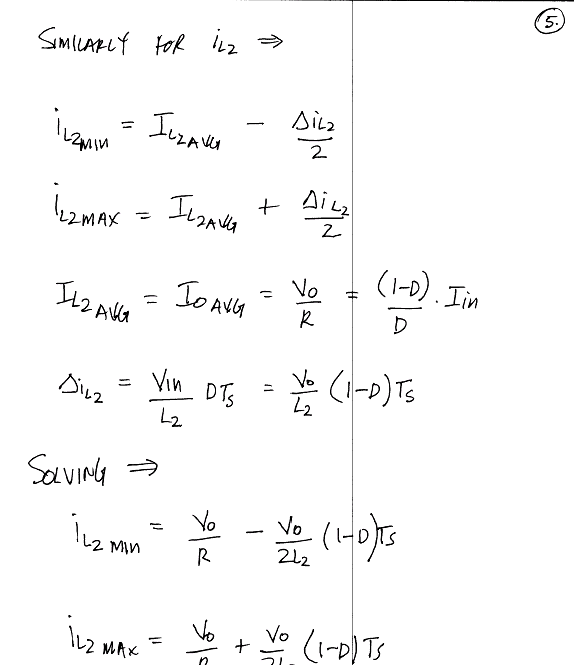 5.
SIMILARLY FOR iL2 ⇒
iL2MIN = IL2AVG - ΔiL2/2
iL2MAX = IL2AVG + ΔiL2/2
IL2AVG = IOAVG = Vo/R = (1-D)/D . Iin
ΔiL2 = Vin/L2 DTs = Vo/L2 (1-D)Ts
SOLVING ⇒
iL2MIN = Vo/R - Vo/2L2 (1-D)Ts
iL2MAX = Vo/R + Vo/2L2 (1-D)Ts